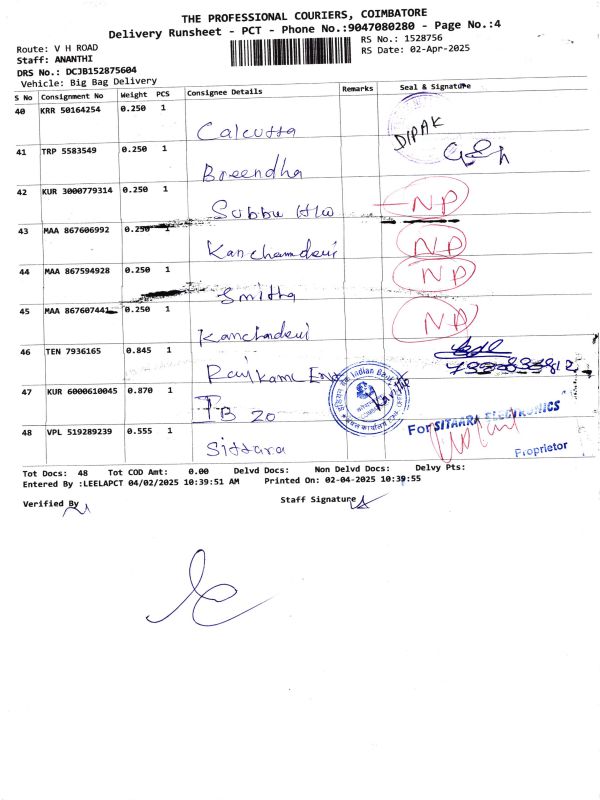 THE PROFESSIONAL COURIERS, COIMBATORE
Delivery Runsheet - PCT - Phone No.:9047080280 - Page No.:4
Route: V H ROAD
RS No.: 1528756
Staff: ANANTHI
RS Date: 02-Apr-2025
DRS No.: DCJB152875604
Vehicle: Big Bag Delivery
S No Consignment No Weight PCS Consignee Details Remarks Seal & Signature
40 KRR 50164254 0.250 1 Calcutta DIPAK
41 TRP 5583549 0.250 1 Breendha
42 KUR 3000779314 0.250 1 Subbu NP
43 MAA 867606992 0.250 1 Kanchamdevi NP
44 MAA 867594928 0.250 1 Smitha NP
45 MAA 867607441 0.250 1 Kanchadevi NP
46 TEN 7936165 0.845 1
47 KUR 6000610045 0.870 1 IB 20 Indian Bank
48 VPL 519289239 0.555 1 Sittara For SITAARA ELECTRONICS
Proprietor
Tot Docs: 48 Tot COD Amt: 0.00 Delvd Docs: Non Delvd Docs: Delvy Pts:
Entered By :LEELAPCT 04/02/2025 10:39:51 AM Printed On: 02-04-2025 10:39:55
Verified By Staff Signature